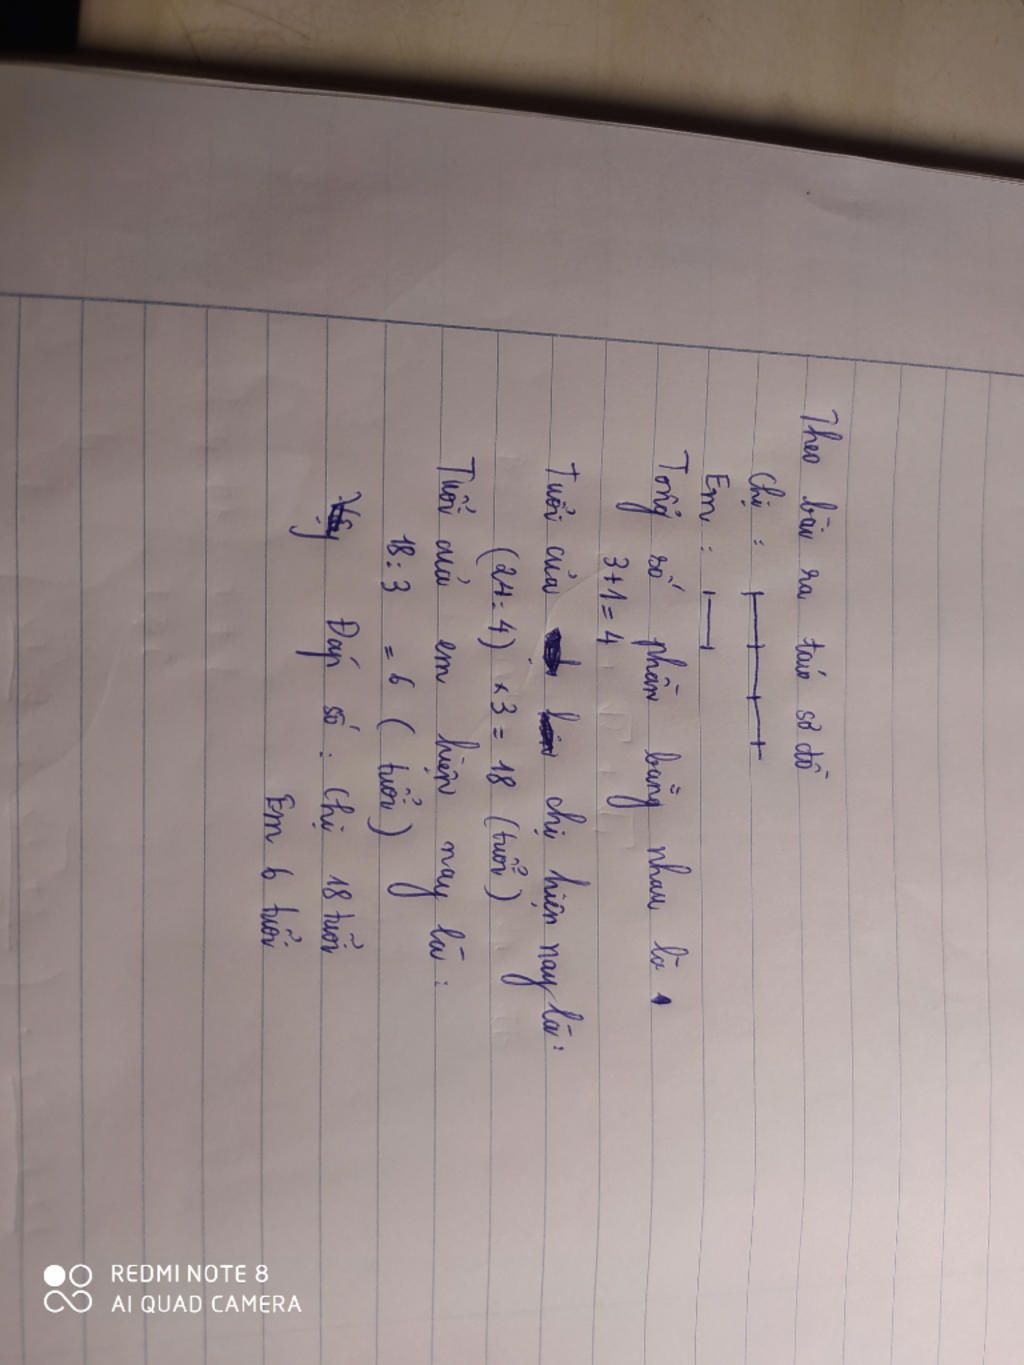 Theo bài ra ta có sơ đồ
Chị :
Em :
Tổng số phần bằng nhau là
3+1=4
Tuổi của chị hiện nay là :
(24:4) x3 = 18 (tuổi)
Tuổi của em hiện nay là :
18:3 = 6 ( tuổi )
Đáp số : Chị 18 tuổi
Em 6 tuổi
REDMI NOTE 8
AI QUAD CAMERA